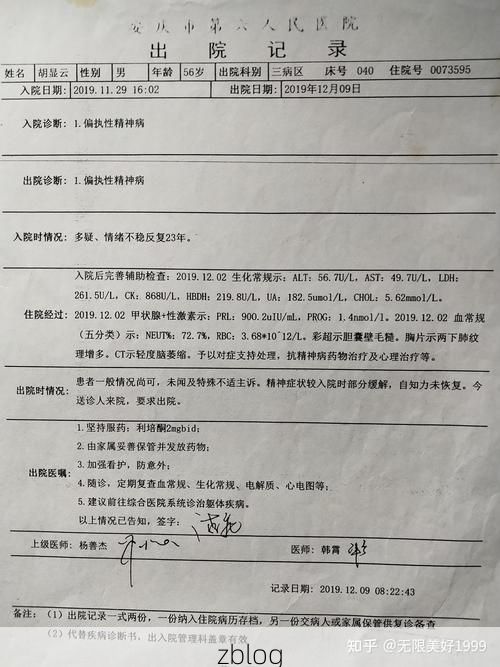 安庆市第六人民医院
出院记录
姓名 胡显云 性别 男 年龄 56岁 出院科别 三病区 床号 040 住院号 0073595
入院日期: 2019.11.29 16:02 出院日期: 2019年12月09日
入院诊断: 1.偏执性精神病
出院诊断: 1.偏执性精神病
入院时情况: 多疑、情绪不稳反复23年。
入院后完善辅助检查: 2019.12.02 生化常规示: ALT: 56.7U/L, AST: 49.7U/L, LDH:
261.5U/L, CK: 868U/L, HBDH: 219.8U/L, UA: 182.5umol/L, CHOL: 5.62mmol/L.
住院经过: 2019.12.02 甲状腺+性激素示: PRL: 900.2uIU/mL, PROG: 1.4nmol/l. 2019.12.02 血常规
(五分类) 示: NEUT%: 72.7%, RBC: 3.68*10^12/L. 彩超示胆囊壁毛糙。胸片示两下肺纹
理增多。CT示轻度脑萎缩。予以对症支持处理, 抗精神病药物治疗及心理治疗等。
出院时情况: 患者一般情况尚可, 未闻及特殊不适主诉。精神症状较入院时部分缓解, 自知力未恢复。今
送诊人来院, 要求出院。
1.坚持服药: 利培酮2mgbid;
2.由家属妥善保管并发放药物;
3.加强看护, 防意外;
出院医嘱: 4.随诊, 定期复查血常规、生化常规、电解质、心电图等;
5.建议前往综合医院系统诊治躯体疾病。
以上情况已告知, 签字:
上级医师: 杨善杰 医师: 韩霄
记录日期: 2019.12.09 08:22:43
备注: (1) 出院记录一式两份, 一份纳入住院病历存档, 另一份交病人或家属保管供复诊备查
(2) 代替疾病诊断书, 出入院管理科盖章有效。
知乎 @无限美好1999
zblog